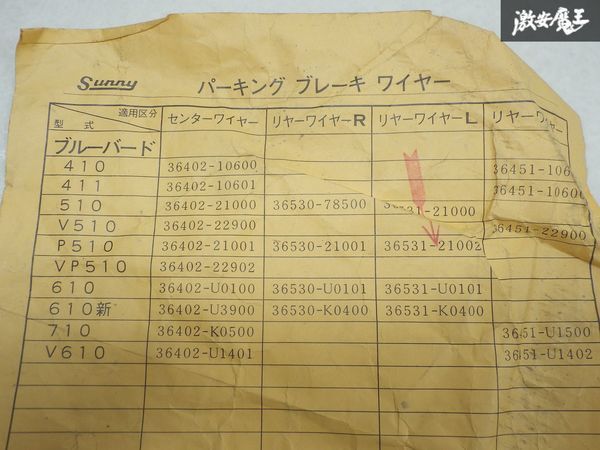 激安魔王
Sunny パーキング ブレーキ ワイヤー
適用区分
型式 センターワイヤー リヤーワイヤーR リヤーワイヤーL リヤーワイヤー
ブルーバード
410 36402-10600 36451-1060
411 36402-10601 36451-10600
510 36402-21000 36530-78500 -21000
V510 36402-22900 36451-22900
P510 36402-21001 36530-21001 36531-21002
VP510 36402-22902
610 36402-U0100 36530-U0101 36531-U0101
610新 36402-U3900 36530-K0400 36531-K0400
710 36402-K0500 3651-U1500
V610 36402-U1401 36451-U1402